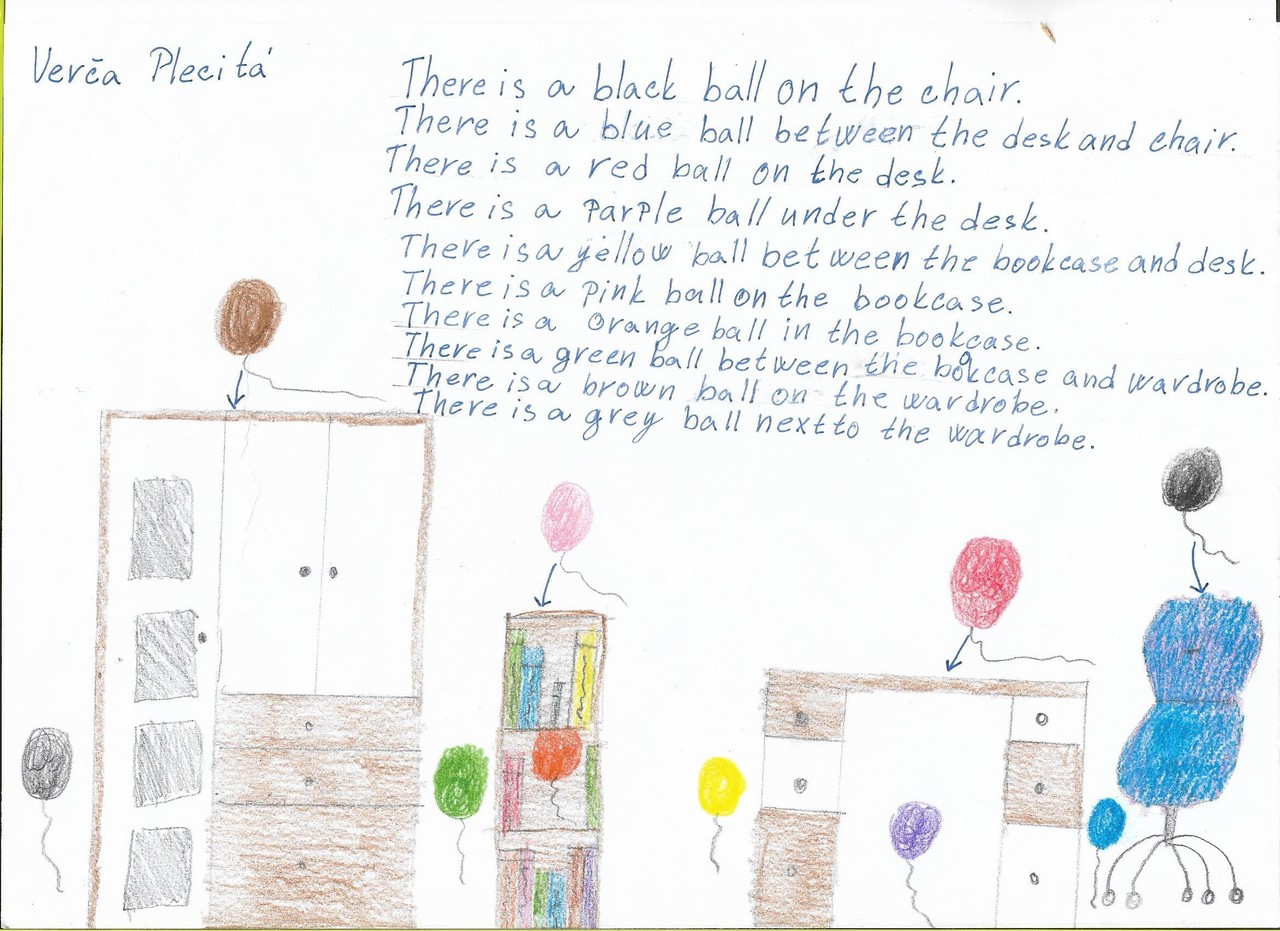 Verča Plecitá
There is a black ball on the chair.
There is a blue ball between the desk and chair.
There is a red ball on the desk.
There is a parple ball under the desk.
There is a yellow ball between the bookcase and desk.
There is a pink ball on the bookcase.
There is a orange ball in the bookcase.
There is a green ball between the bookcase and wardrobe.
There is a brown ball on the wardrobe.
There is a grey ball next to the wardrobe.